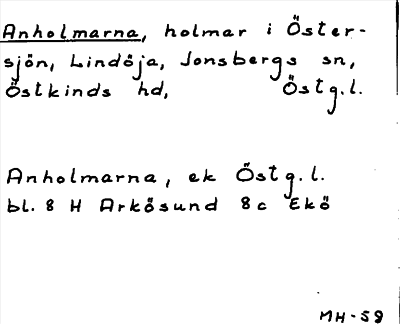 Anholmarna, holmar i Öster-
sjön, Lindöja, Jonsbergs sn,
Östkinds hd, Östg.l.
Anholmarna, ek Östg.l.
bl. 8 H Arkösund 8c Ekö
MH-59